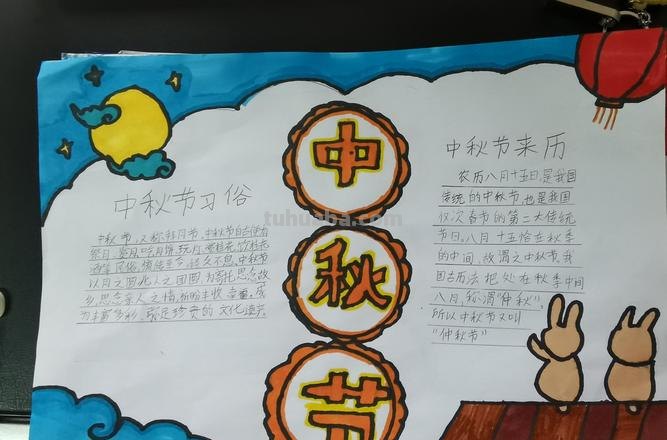 中
秋
节
中秋节习俗
中秋节,又称拜月节,中秋节自古便有
祭月、赏月、吃月饼、玩月、赏桂花、饮桂花
酒等民俗,流传至今,经久不息,中秋节
以月之圆兆人之团圆,为寄托思念故
乡,思念亲人之情,祈盼丰收、幸福,成
为丰富多彩、弥足珍贵的文化遗产。
中秋节来历
农历八月十五日是我国
传统的中秋节,也是我国
仅次春节的第二大传统
节日。八月十五恰在秋季
的中间,故谓之中秋节。我
国古历法把处在秋季中间
八月,称谓"仲秋",
所以中秋节又叫
"仲秋节"
tuhuaba.com